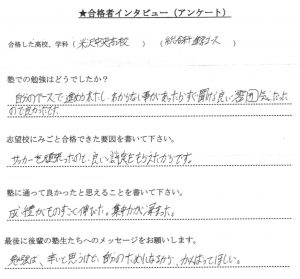 ★合格者インタビュー（アンケート）
合格した高校、学科（米沢中央高校）（総合科進学コース）
塾での勉強はどうでしたか？
自分のペースで進められたし、わからない事があったらすぐ聞ける良い雰囲気だった
ので良かったです。
志望校にみごと合格できた要因を書いて下さい。
サッカーを頑張ったので、良い評定をもらえたからです。
塾に通って良かったと思えることを書いて下さい。
成績がものすごく伸びた。集中力が高まった。
最後に後輩の塾生たちへのメッセージをお願いします。
勉強は、辛いと思うけど、自分のためになるから、がんばってほしい。